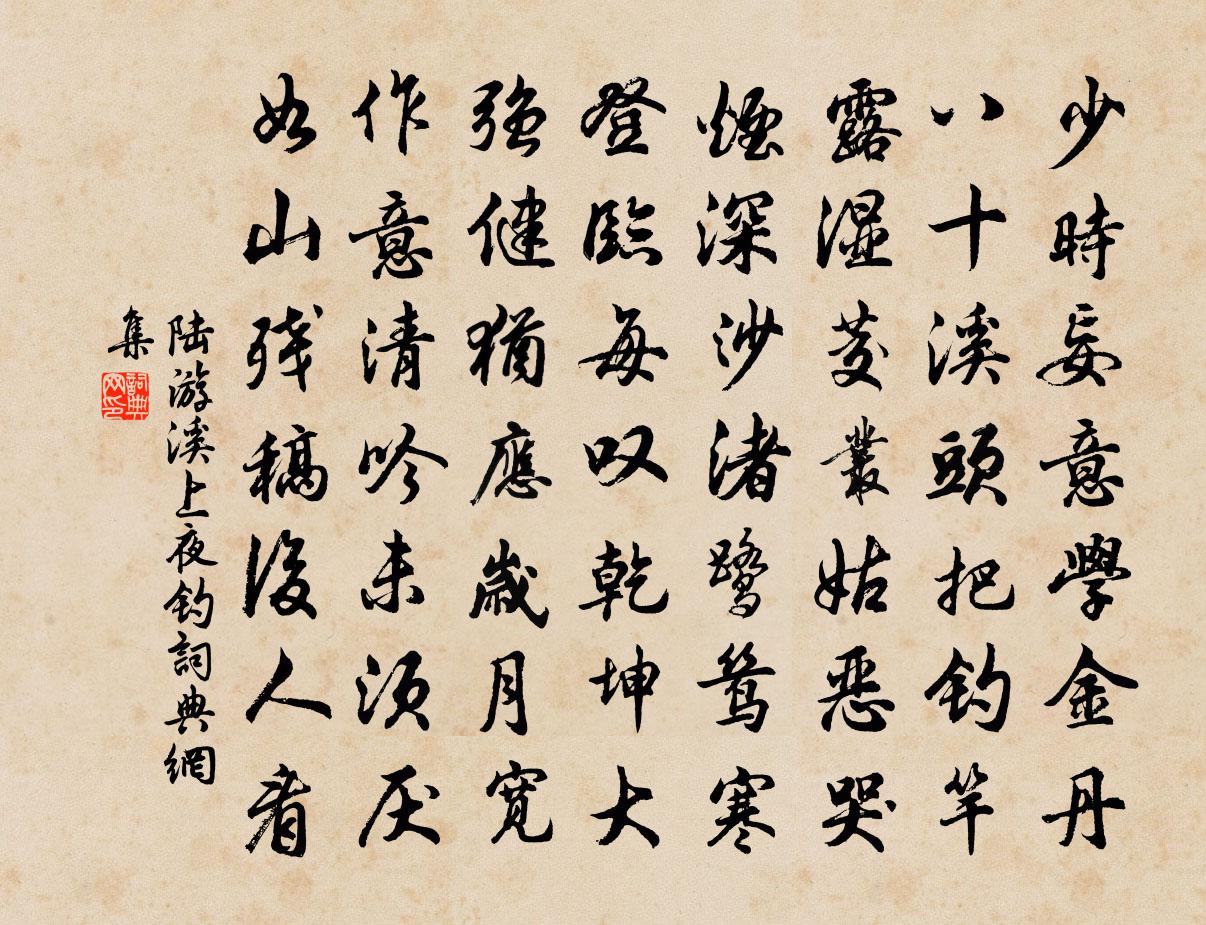 少時妄意學金丹
八十溪頭把釣竿
露濕茭叢姑惡哭
煙深沙渚鷺鴛寒
登臨每叹乾坤大
強健猶應歲月寬
作意清吟未須厌
如山残稿後人看
陸游溪上夜釣詞典網
集
詞典
网印